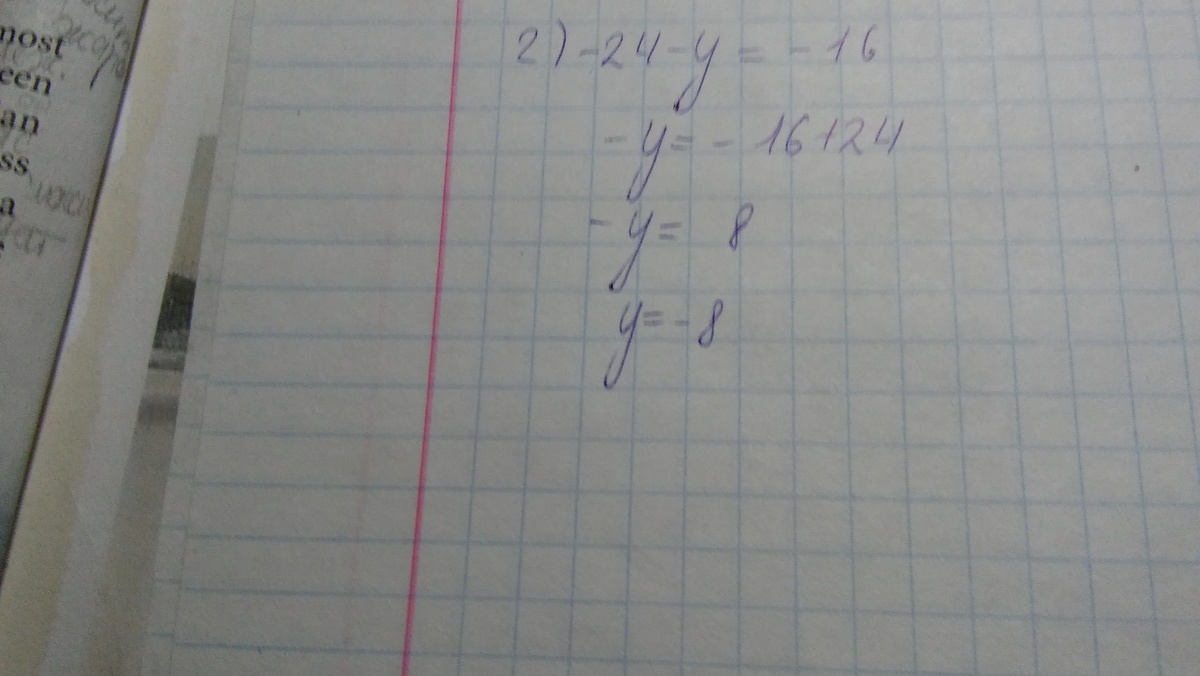 most
een
an
ss
a
2) -24 - y = -16
- y = - 16 + 24
- y = 8
y = -8